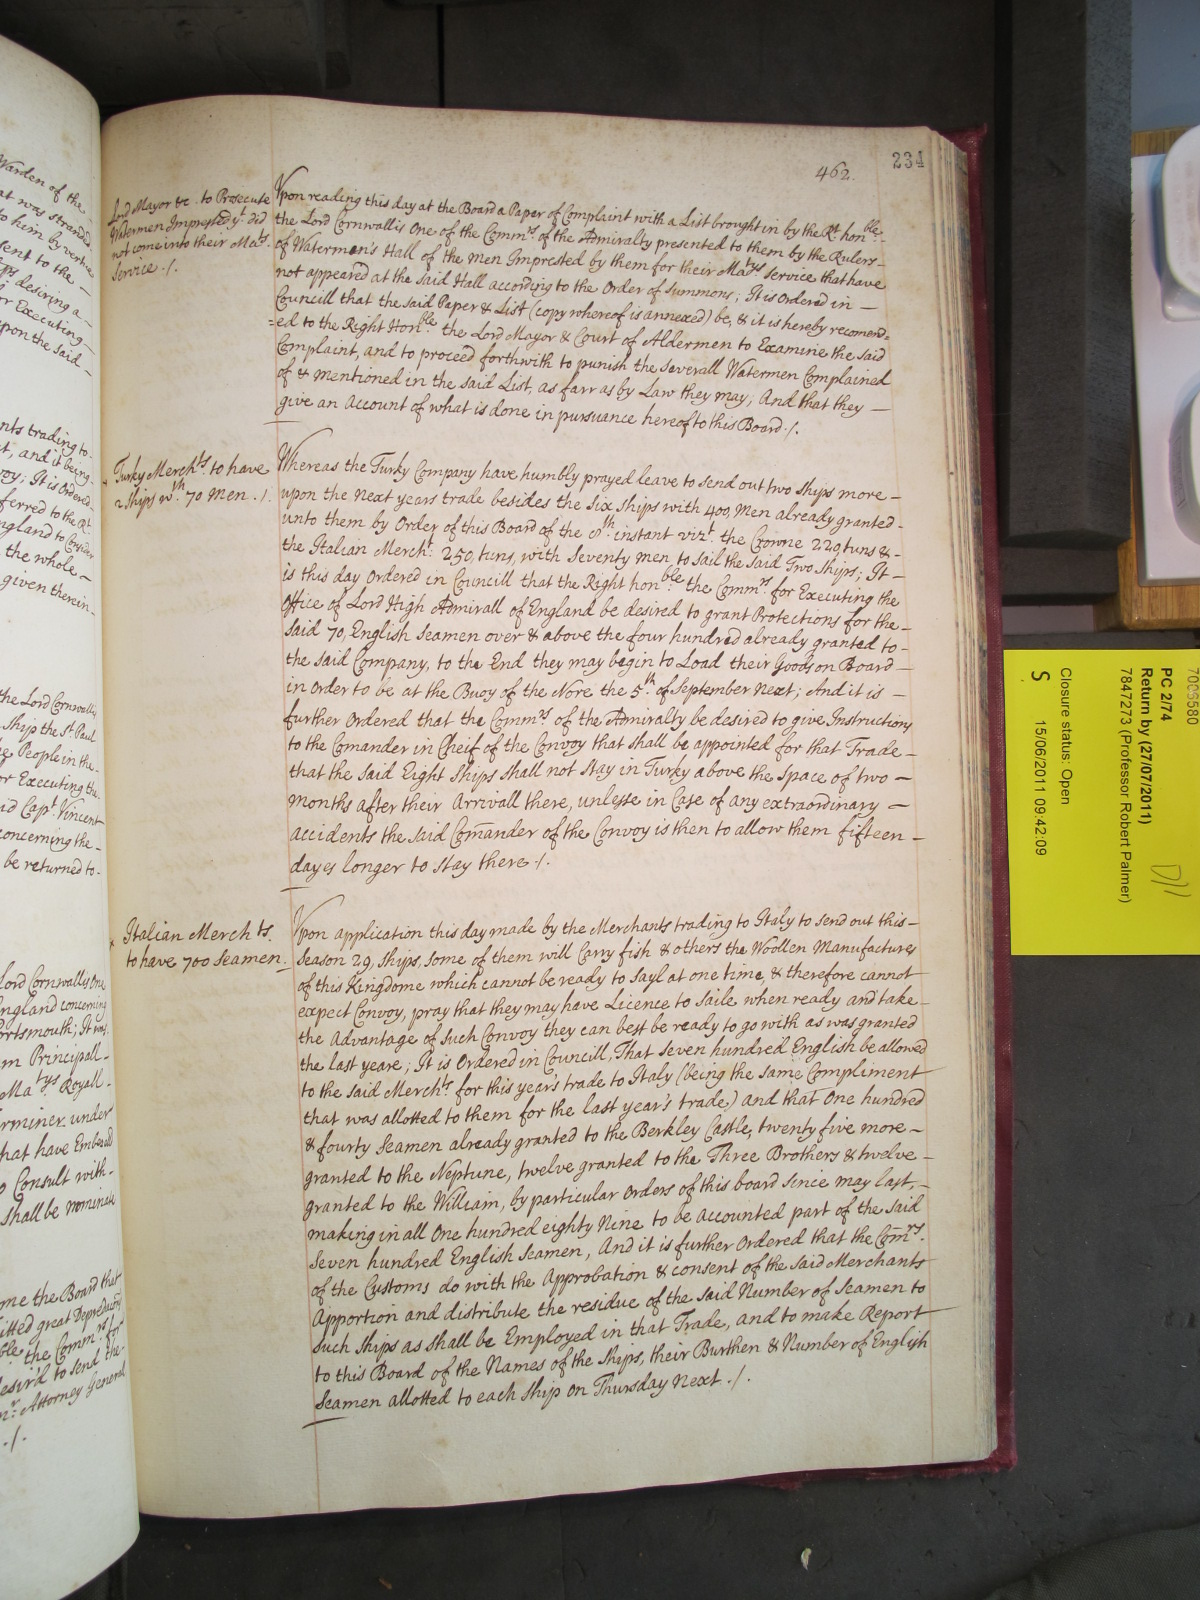 Warden of the
at was stranded
to him by vertue
sent to the —
desiring a —
or Executing —
upon the said —
nts trading to
t, and it being
voy; It is Ordered
ferred to the Rt
ngland to Consider
the whole —
given therein —
the Lord Cornwallis
Ship the St. Paul
People in the —
or Executing the
id Capt. Vincent
concerning the —
be returned to —
Lord Cornwallis One
England concerning
Portsmouth; It was
m Principall —
Matys Royall —
rminer under
hat have Embezzd
o Consult with —
shall be nominate
me the Board that
itted great Depredacons
ble the Commrs for
desir'd to send the
mr: Attorney General
./.
462.
234
Lord Mayor &c. to Prosecute
Watermen Impressed yt. did
not come into their Mats.
Service ./.
Upon reading this day at the Board a Paper of Complaint with a List brought in by the Rt honble
the Lord Cornwallis One of the Commrs of the Admiralty presented to them by the Rulers —
of Watermen's Hall of the men Impressed by them for their Matys Service that have
not appeared at the said Hall according to the Order of Summons; It is Ordered in —
Councill that the said Paper & List (copy whereof is annexed) be, & it is hereby recomend=
=ed to the Right Honble the Lord Mayor & Court of Aldermen to Examine the said
Complaint, and to proceed forthwith to punish the severall Watermen Complained
of & mentioned in the said List, as farr as by Law they may, And that they —
give an Account of what is done in pursuance hereof to this Board ./.
Turky Merchts. to have
2 Ships wth. 70 men ./.
Whereas the Turky Company have humbly prayed leave to send out two Ships more —
upon the Next years trade besides the Six Ships with 400, Men already granted —
unto them by Order of this Board of the 8th. instant vizt. the Crowne 220, tuns & —
the Italian Mercht. 250, tuns, with Seventy men to sail the said Two Ships; It —
is this day Ordered in Councill that the Right honble the Commrs. for Executing the
Office of Lord High Admirall of England be desired to grant Protections for the —
said 70, English Seamen over & above the four hundred already granted to —
the said Company, to the End they may begin to Load their Goods on Board —
in Order to be at the Buoy of the Nore the 5th. of September Next; And it is —
further Ordered that the Commrs of the Admiralty be desired to give Instructions
to the Comander in Cheif of the Convoy that shall be appointed for that Trade —
that the said Eight Ships shall not Stay in Turky above the Space of two —
months after their Arrivall there, unlesse in Case of any extraordinary —
accidents the said Comander of the Convoy is then to allow them fifteen —
dayes longer to stay there ./.
Italian Merchts.
to have 700 Seamen.
Upon application this day made by the Merchants trading to Italy to send out this —
Season 29, Ships, some of them will Carry fish & others the Woollen Manufactures
of this Kingdome which cannot be ready to Sayl at one time, & therefore cannot
expect Convoy, pray that they may have Licence to Saile when ready and take —
the Advantage of such Convoy they can best be ready to go with as was granted
the last yeare; It is Ordered in Councill, That seven hundred English be allowed
to the said Merchts for this year's trade to Italy (being the same Compliment
that was allotted to them for the last year's trade,) and that One hundred
& fourty Seamen already granted to the Berkley Castle, twenty five more —
granted to the Neptune, twelve granted to the Three Brothers & twelve —
granted to the William, by particular Orders of this board since may last, —
making in all One hundred eighty Nine to be accounted part of the said
Seven hundred English Seamen, And it is further Ordered that the Comrs.
of the Customs do with the Approbation & consent of the said Merchants
Apportion and distribute the residue of the said Number of Seamen to
such Ships as shall be Employed in that Trade, and to make Report
to this Board of the Names of the Ships, their Burthen & Number of English
Seamen allotted to each Ship on Thursday Next ./.
PC 2/74
Return by (27/07/2011)
7847273 (Professor Robert Palmer)
Closure status: Open
S 15/06/2011 09:42:09
D11